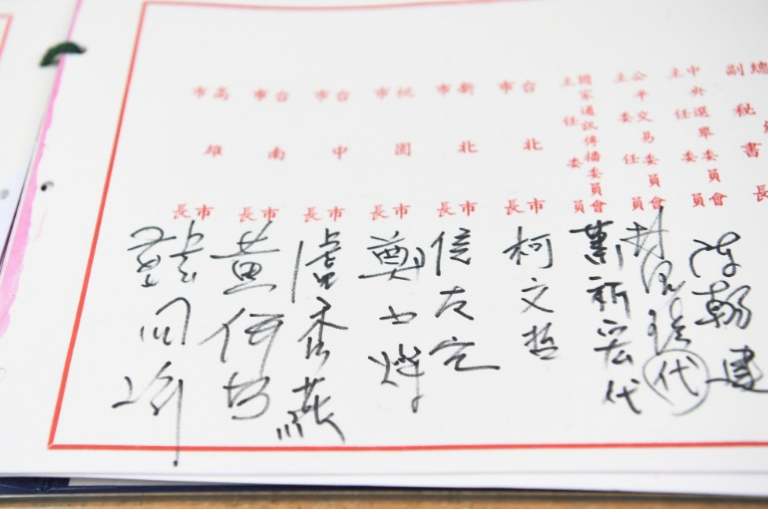 副秘書長
陳朝建
中央選舉委員會主任委員
公平交易委員會主任委員
代
國家通訊傳播委員會主任委員
蕭祈宏代
台北市市長
柯文哲
新北市市長
侯友宜
桃園市市長
鄭文燦
台中市市長
盧秀燕
台南市市長
黃偉哲
高雄市市長
韓國瑜